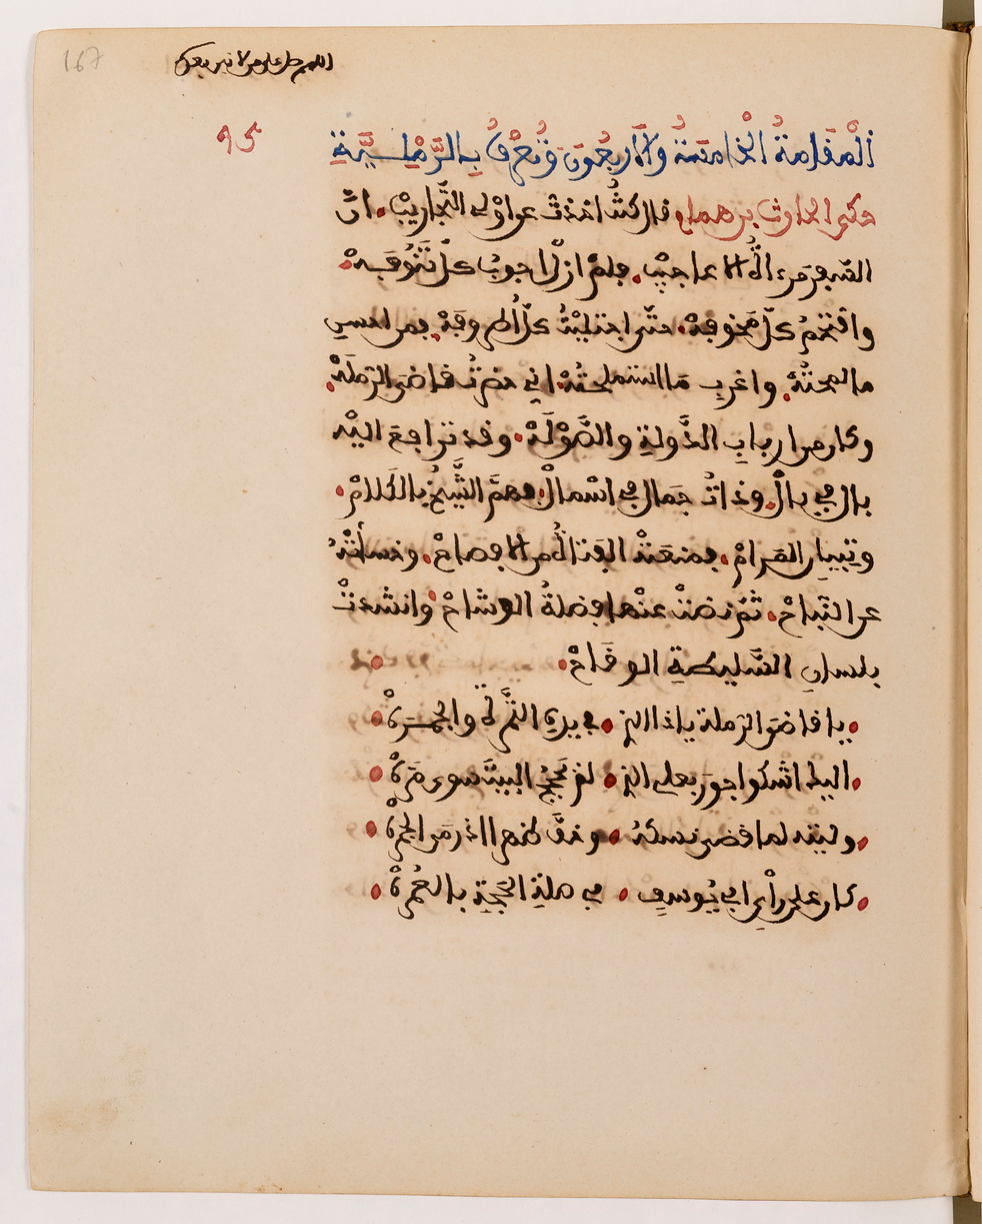 167
اللهم صل على من لا نبي بعده
اَلْمَقَامَةُ الْخَامِسَةُ وَالْأَرْبَعُونَ وَتُعْرَفُ بِالرَّمْلِيَّةِ 45
حكى الحارث بن همام قال كنتُ اخذت عن اولى التّجاريبْ. انّ
السّفر مرءاةُ الاعاجيبْ. فلم ازلْ اجوبُ كلّ تَنُوفَهْ.
واقتحمُ كلّ مَخوفهْ. حتّى اجتليْتُ كلّ اُطروفهْ. فمن احسنِ
ما لمحتُهُ. واغربِ مَا استملحتُهْ. اني حضرتُ قاضيَ الرّملَهْ.
وكان من اربابِ الدَّولةِ والصَّوْلَهْ. وقد ترافعَ اليْه
بالٍ في بالْ. وذاتُ جَمال في اسْمالْ. فهمَّ الشَّيْخُ بالكَلامْ.
وتِبيانِ المَرامْ. فمنعَتْهُ الفتاةُ من الافصاحْ. وخسأَتْهُ
عن النّباحْ. ثمّ نضَتْ عنْها فضلةُ الوِشاحْ وانشدتْ
بلسانِ السَّليطةِ الوقَاحْ.
يا قاضيَ الرّملة يا ذا الذي. في يدِهِ التَّمْرَةُ والجَمْرَهْ
اليك اشكوا جورَ بعلي الذي. لم يَحجُجِ البيتَ سوى مَرَّهْ
وليته لما قضى نسكَهُ. وخفَّ ظهرا اذ رمَى الجمرهْ
كان على رأْيِ ابي يُوسفٍ. في صلةِ الحَجّةِ بالعُمْرَهْ